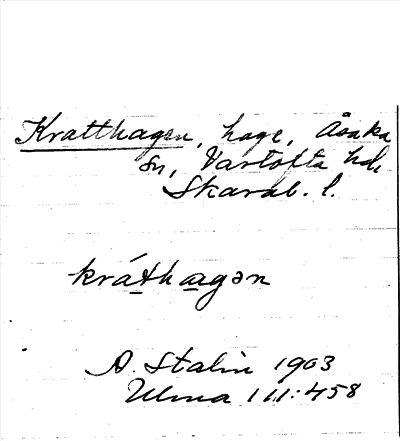 Kratthagen, hage, Åsaka
sn, Vartofta hd,
Skarab. l.
kráthagən
A. Stalin 1903
Ulma 111:458